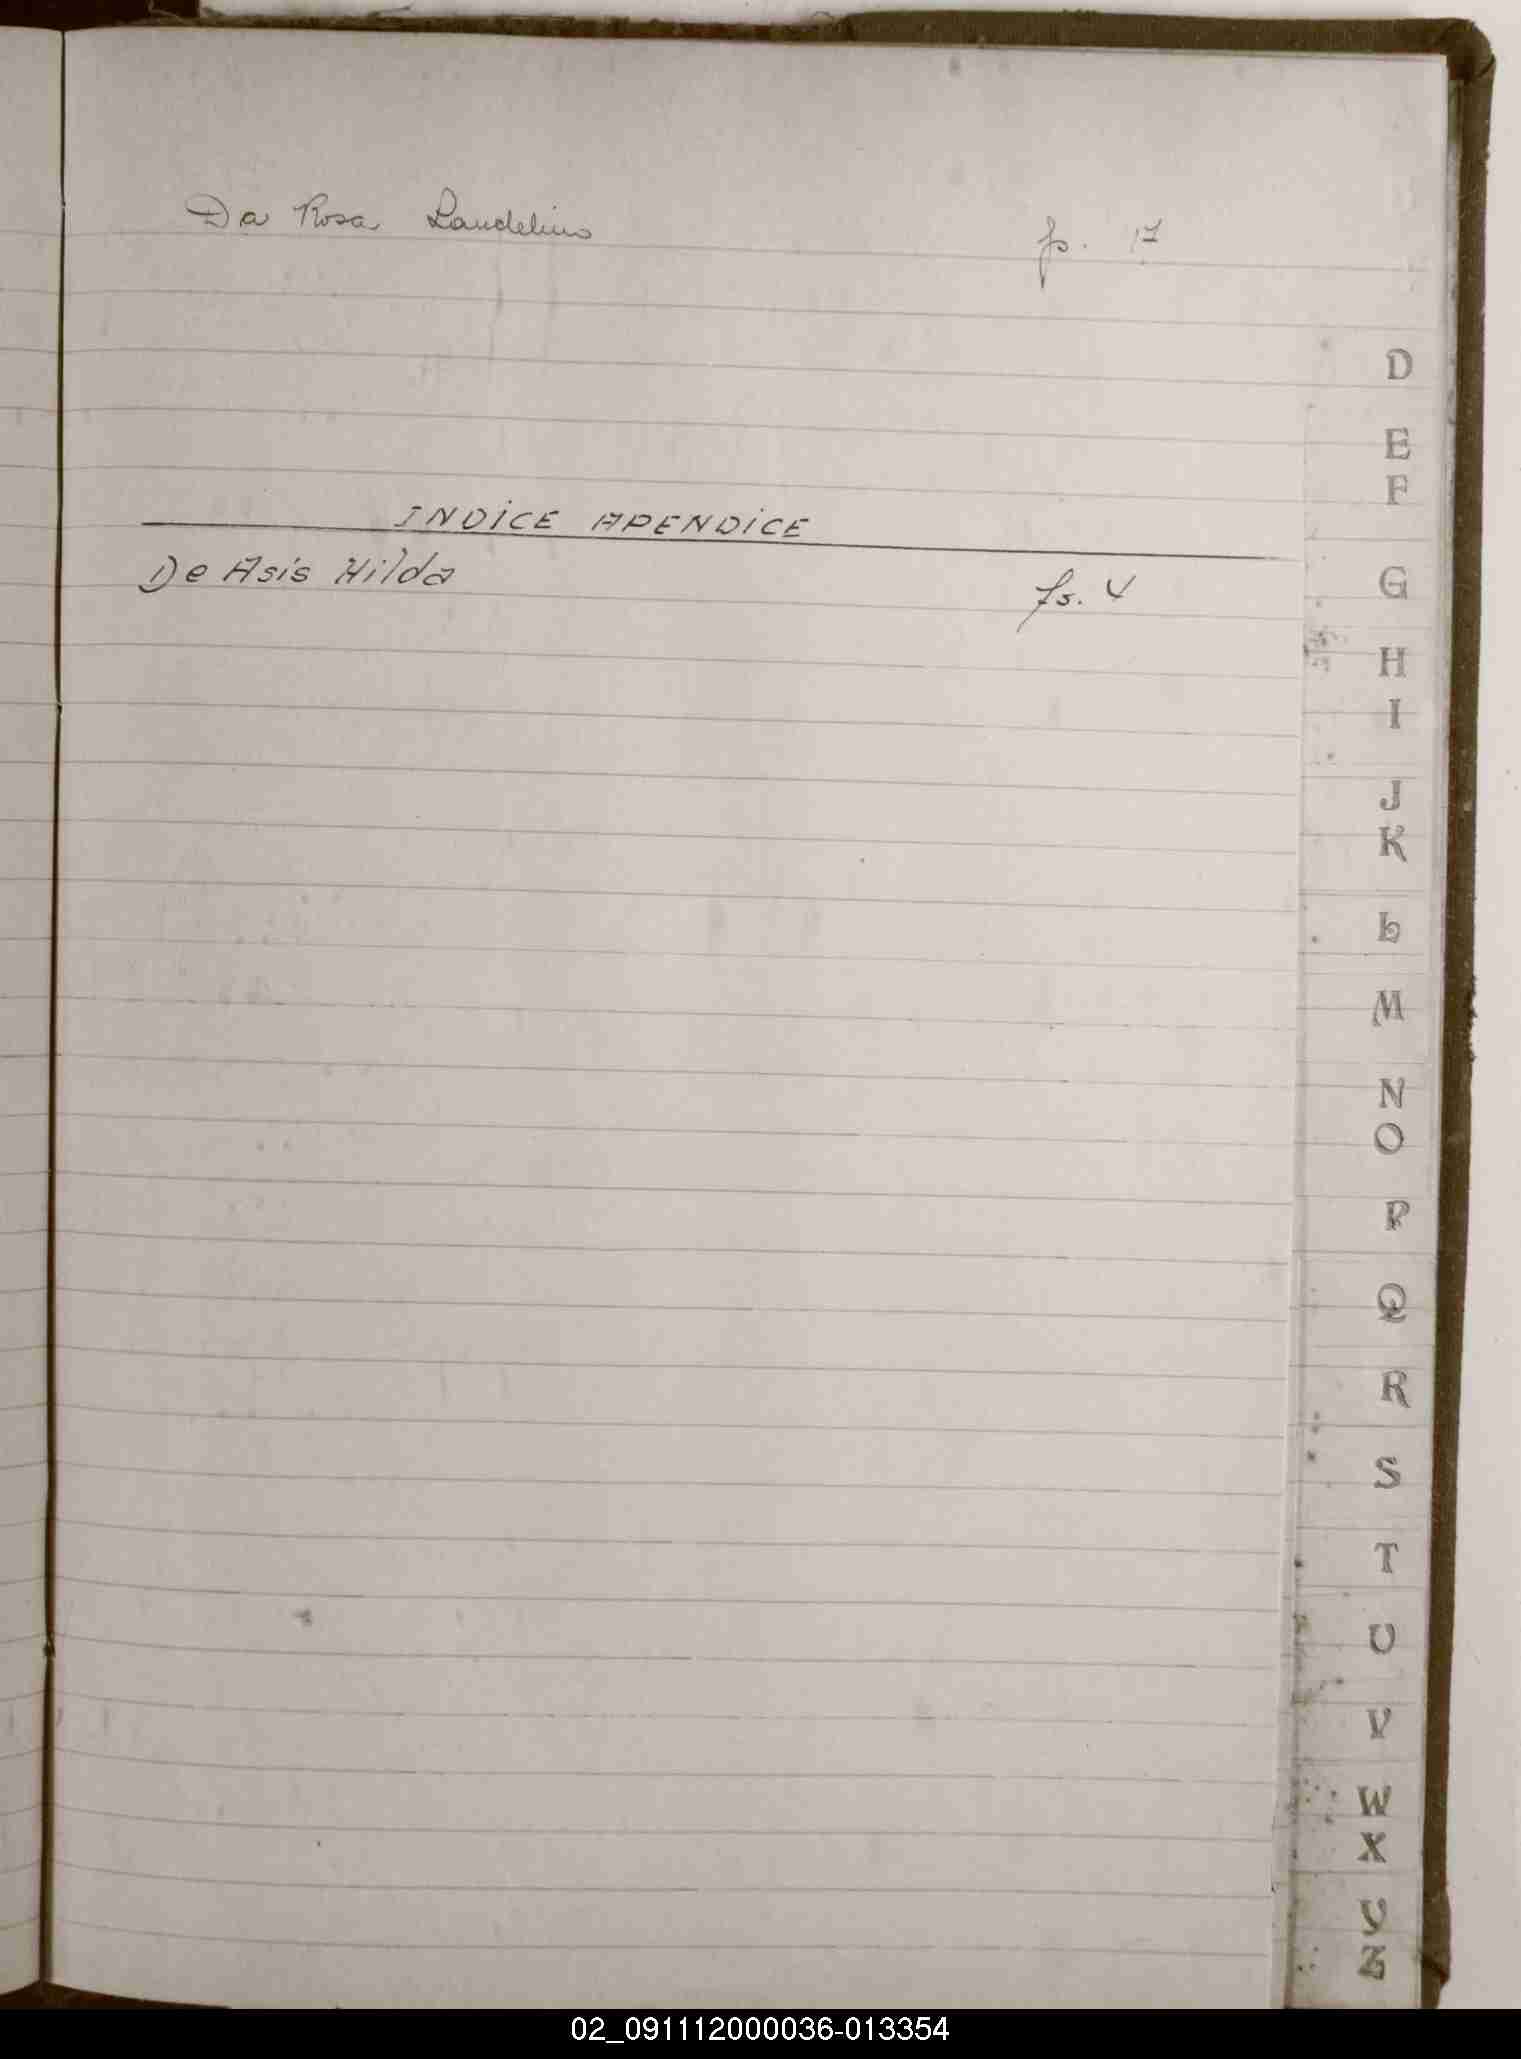 Da Rosa Laudelino fs. 17
INDICE APENDICE
De Asis Hilda fs. 4
D
E
F
G
H
I
J
K
L
M
N
O
P
Q
R
S
T
U
V
W
X
Y
Z
02_091112000036-013354